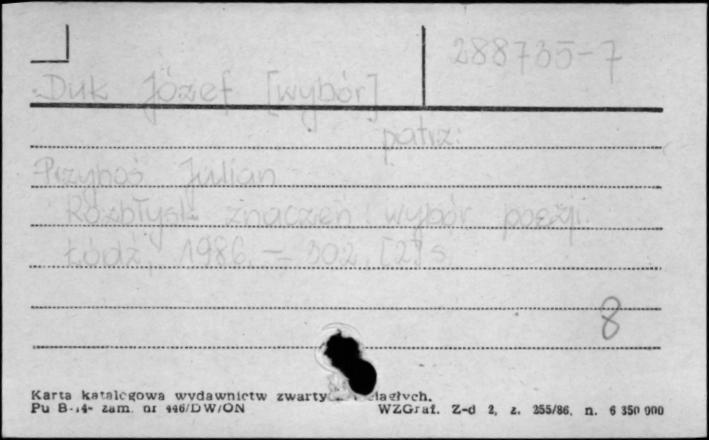 288735-7
Duk Józef [wybór]
patrz:
Przyboś Julian
Rozbłysk znaczeń : wybór poezji.
Łódź, 1986. – 302, [2] s.
8
Karta katalogowa wydawnictw zwarty
Pu B-14- zam. nr 446/DW/ON WZGraf. Z-d 2, z. 255/86, n. 6 350 000